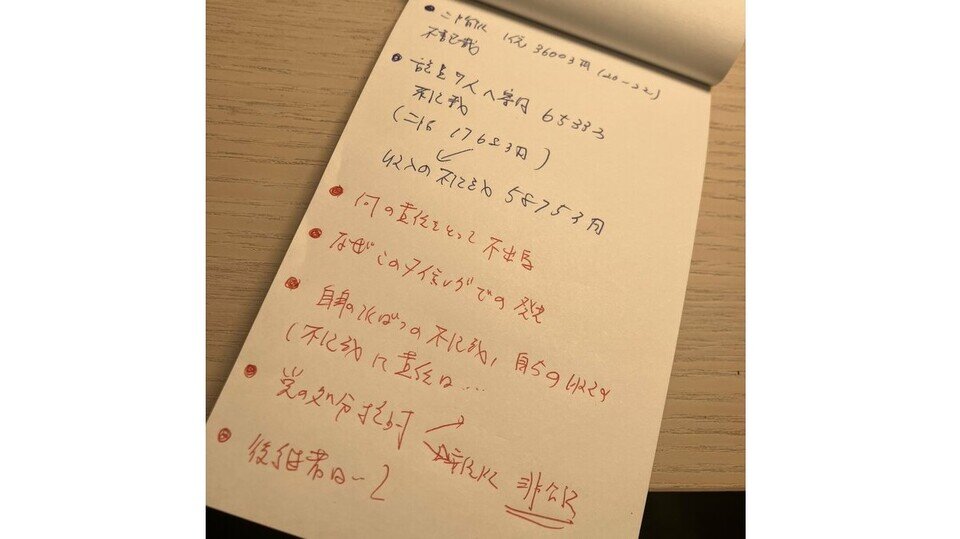 • 二階派 1億 3600万円 (20-22)
不記載
• 議員7人へ寄付 6533万
不記載
(二階 1768万円)
収入の不記載 5875万円
• 何の責任をとって不出馬
• なぜこのタイミングでの発表
• 自身の派ばつの不記載、自分の収支の
(不記載に責任は…
• 党の処分検討
非公認
• 後継者は～